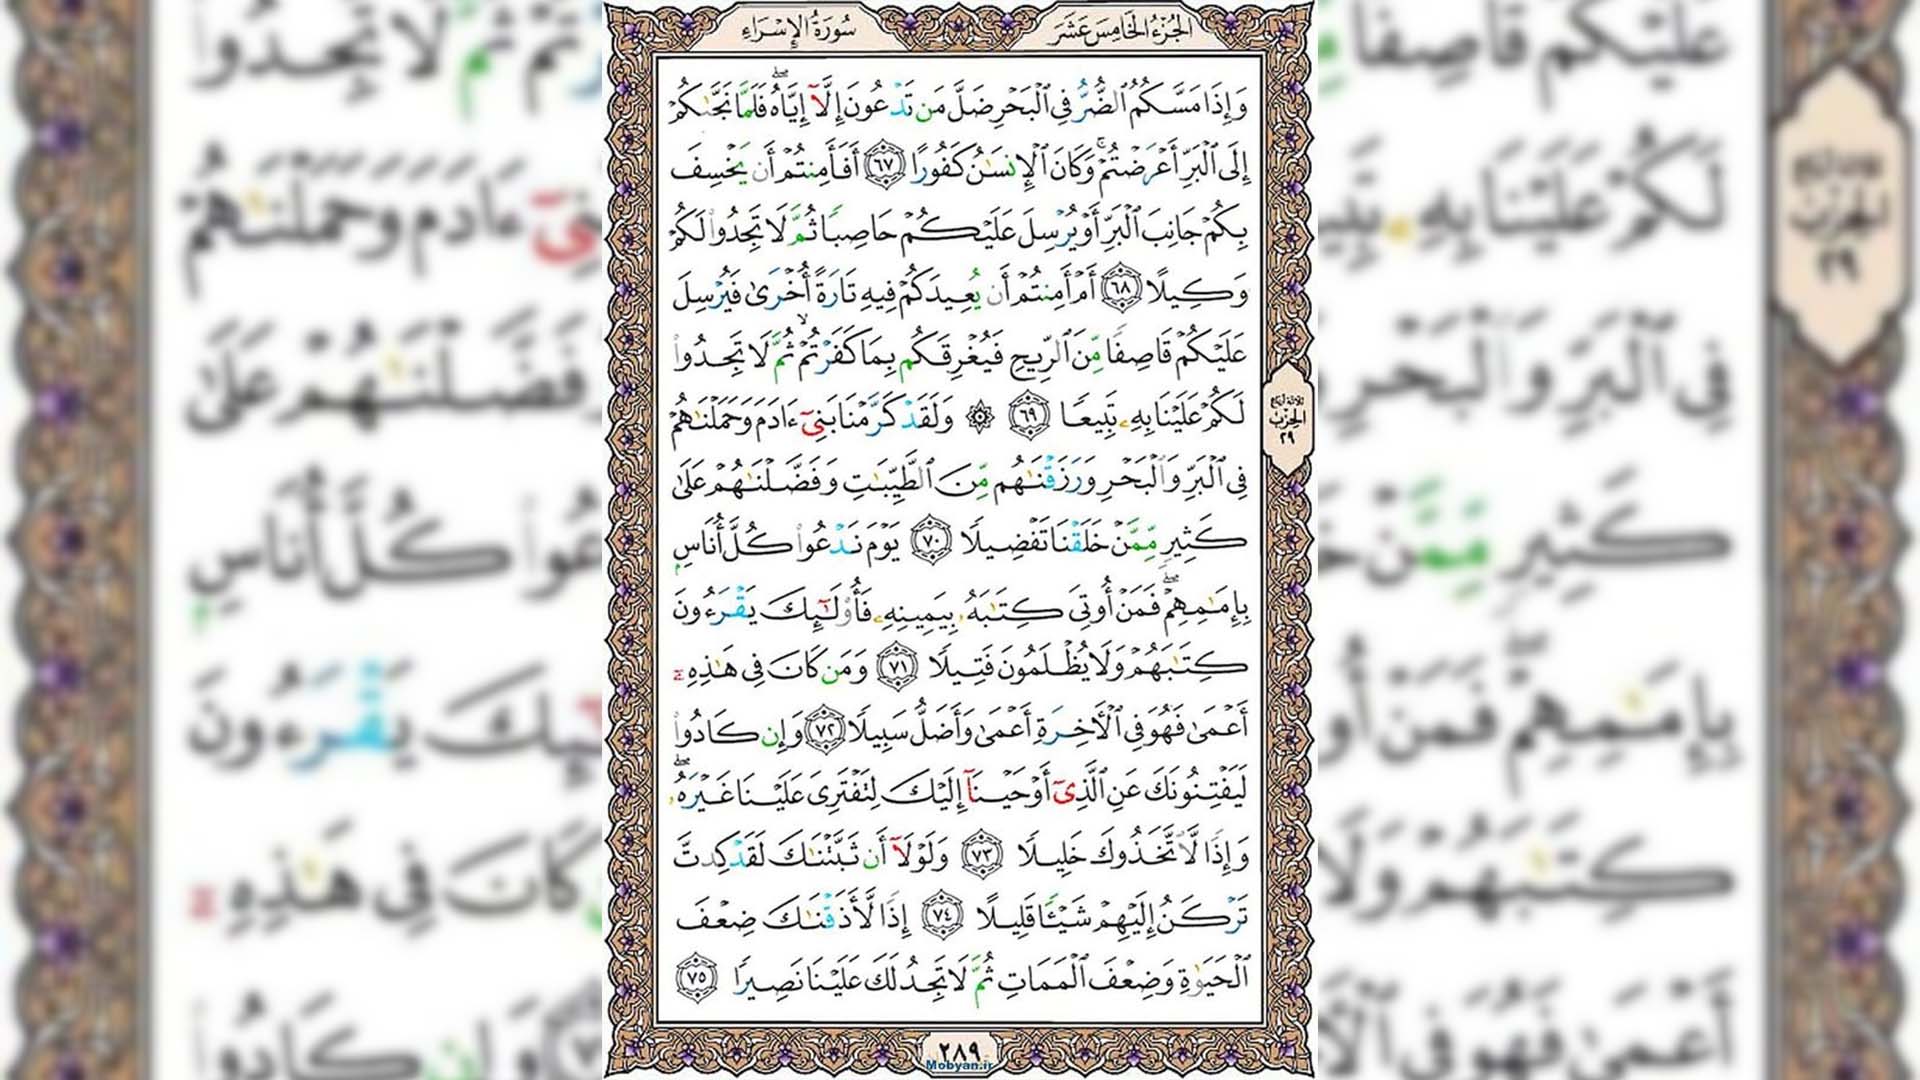 الجزء الخامس عشر
سورة الإسراء
وَإِذَا مَسَّكُمُ ٱلضُّرُّ فِى ٱلْبَحْرِ ضَلَّ مَن تَدْعُونَ إِلَّآ إِيَّاهُ ۖ فَلَمَّا نَجَّىٰكُمْ
إِلَى ٱلْبَرِّ أَعْرَضْتُمْ ۚ وَكَانَ ٱلْإِنسَـٰنُ كَفُورًا ٦٧ أَفَأَمِنتُمْ أَن يَخْسِفَ
بِكُمْ جَانِبَ ٱلْبَرِّ أَوْ يُرْسِلَ عَلَيْكُمْ حَاصِبًا ثُمَّ لَا تَجِدُوا۟ لَكُمْ
وَكِيلًا ٦٨ أَمْ أَمِنتُمْ أَن يُعِيدَكُمْ فِيهِ تَارَةً أُخْرَىٰ فَيُرْسِلَ
عَلَيْكُمْ قَاصِفًا مِّنَ ٱلرِّيحِ فَيُغْرِقَكُم بِمَا كَفَرْتُمْ ۙ ثُمَّ لَا تَجِدُوا۟
لَكُمْ عَلَيْنَا بِهِۦ تَبِيعًا ٦٩ ۞ وَلَقَدْ كَرَّمْنَا بَنِىٓ ءَادَمَ وَحَمَلْنَـٰهُمْ
فِى ٱلْبَرِّ وَٱلْبَحْرِ وَرَزَقْنَـٰهُم مِّنَ ٱلطَّيِّبَـٰتِ وَفَضَّلْنَـٰهُمْ عَلَىٰ
كَثِيرٍ مِّمَّنْ خَلَقْنَا تَفْضِيلًا ٧٠ يَوْمَ نَدْعُوا۟ كُلَّ أُنَاسٍۭ
بِإِمَـٰمِهِمْ ۖ فَمَنْ أُوتِىَ كِتَـٰبَهُۥ بِيَمِينِهِۦ فَأُو۟لَـٰٓئِكَ يَقْرَءُونَ
كِتَـٰبَهُمْ وَلَا يُظْلَمُونَ فَتِيلًا ٧١ وَمَن كَانَ فِى هَـٰذِهِۦٓ
أَعْمَىٰ فَهُوَ فِى ٱلْـَٔاخِرَةِ أَعْمَىٰ وَأَضَلُّ سَبِيلًا ٧٢ وَإِن كَادُوا۟
لَيَفْتِنُونَكَ عَنِ ٱلَّذِىٓ أَوْحَيْنَآ إِلَيْكَ لِتَفْتَرِىَ عَلَيْنَا غَيْرَهُۥ ۖ
وَإِذًا لَّٱتَّخَذُوكَ خَلِيلًا ٧٣ وَلَوْلَآ أَن ثَبَّتْنَـٰكَ لَقَدْ كِدتَّ
تَرْكَنُ إِلَيْهِمْ شَيْـًٔا قَلِيلًا ٧٤ إِذًا لَّأَذَقْنَـٰكَ ضِعْفَ
ٱلْحَيَوٰةِ وَضِعْفَ ٱلْمَمَاتِ ثُمَّ لَا تَجِدُ لَكَ عَلَيْنَا نَصِيرًا ٧٥
ثلاثة أرباع
الحزب
٢٩
٢٨٩
Mobyan.ir